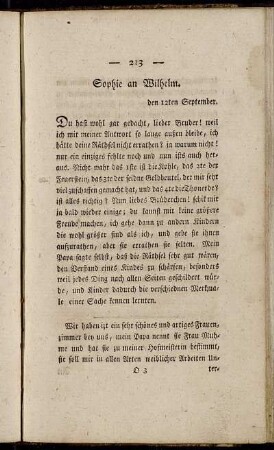 — 213 —
Sophie an Wilhelm.
den 12ten September.
Du hast wohl gar gedacht, lieber Bruder! weil
ich mit meiner Antwort so lange außen bleibe, ich
hätte deine Räthsel nicht errathen? ja warum nicht!
nur ein einziges fehlte noch und nun ists auch her-
aus. Nicht wahr das 1ste ist die Kohle, das 2te der
Feuerstein, das 3te der seidne Geldbeutel, der mir sehr
viel zuschaffen gemacht hat, und das 4te die Thonerde?
ist alles richtig? Nun liebes Brüderchen! schick mir
ja bald wieder einige; du kannst mir keine grösere
Freude machen, ich gehe dann zu andern Kindern
die wohl größer sind als ich, und gebe sie ihnen
aufzurathen, aber sie errathen sie selten. Mein
Papa sagte selbst, daß die Räthsel sehr gut wären,
den Verstand eines Kindes zu schärfen, besonders
weil jedes Ding nach allen Seiten geschildert wür-
de, und Kinder dadurch die verschiednen Merkma-
le einer Sache kennen lernten.
Wir haben izt ein sehr schönes und artiges Frauen-
zimmer bey uns, mein Papa nennt sie Frau Muh-
me und hat sie zu meiner Hofmeisterin bestimmt,
sie soll mir in allen Arten weiblicher Arbeiten Un-
O 3 ter-